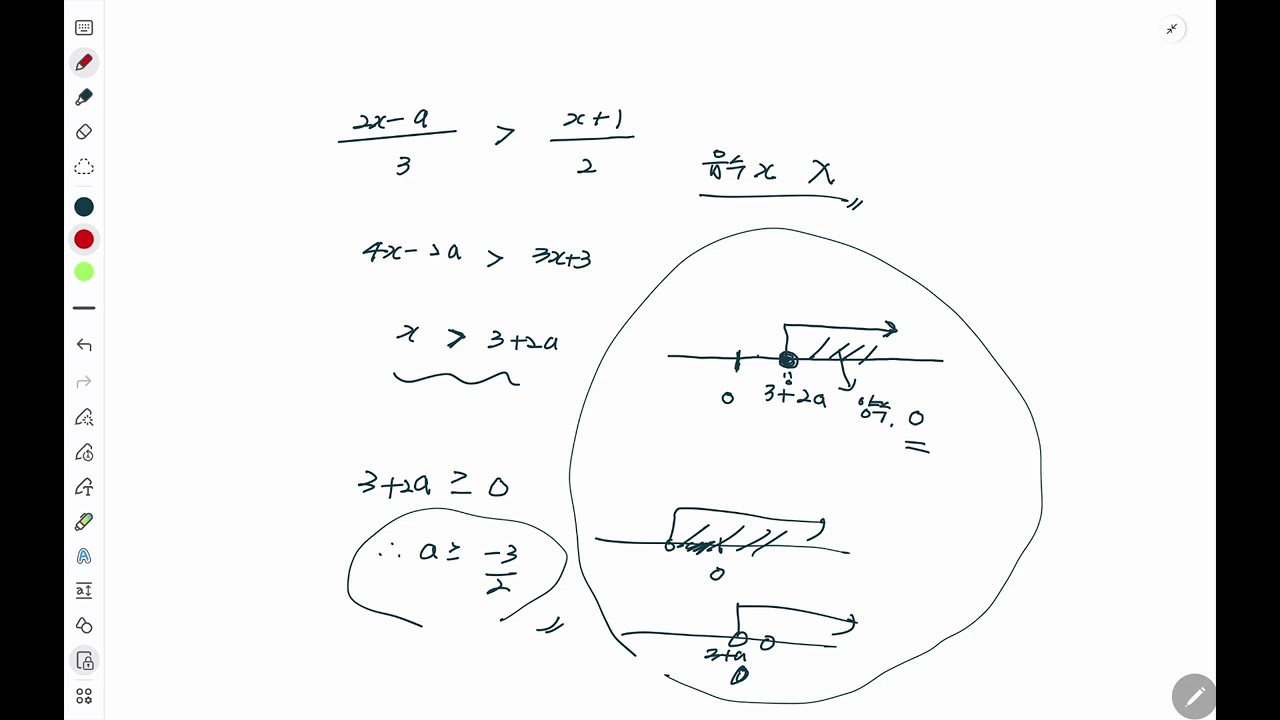 2x-a/3 > x+1/2
음수 x X
4x-2a > 3x+3
x > 3+2a
0 3+2a 0
3+2a ≥ 0
∴ a ≥ -3/2
0
0